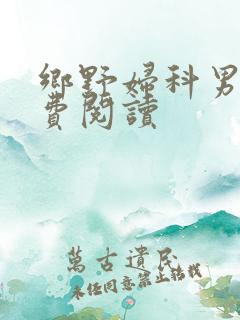 鄉野婦科男
費閱讀
萬古遺民
未經同意禁止轉載